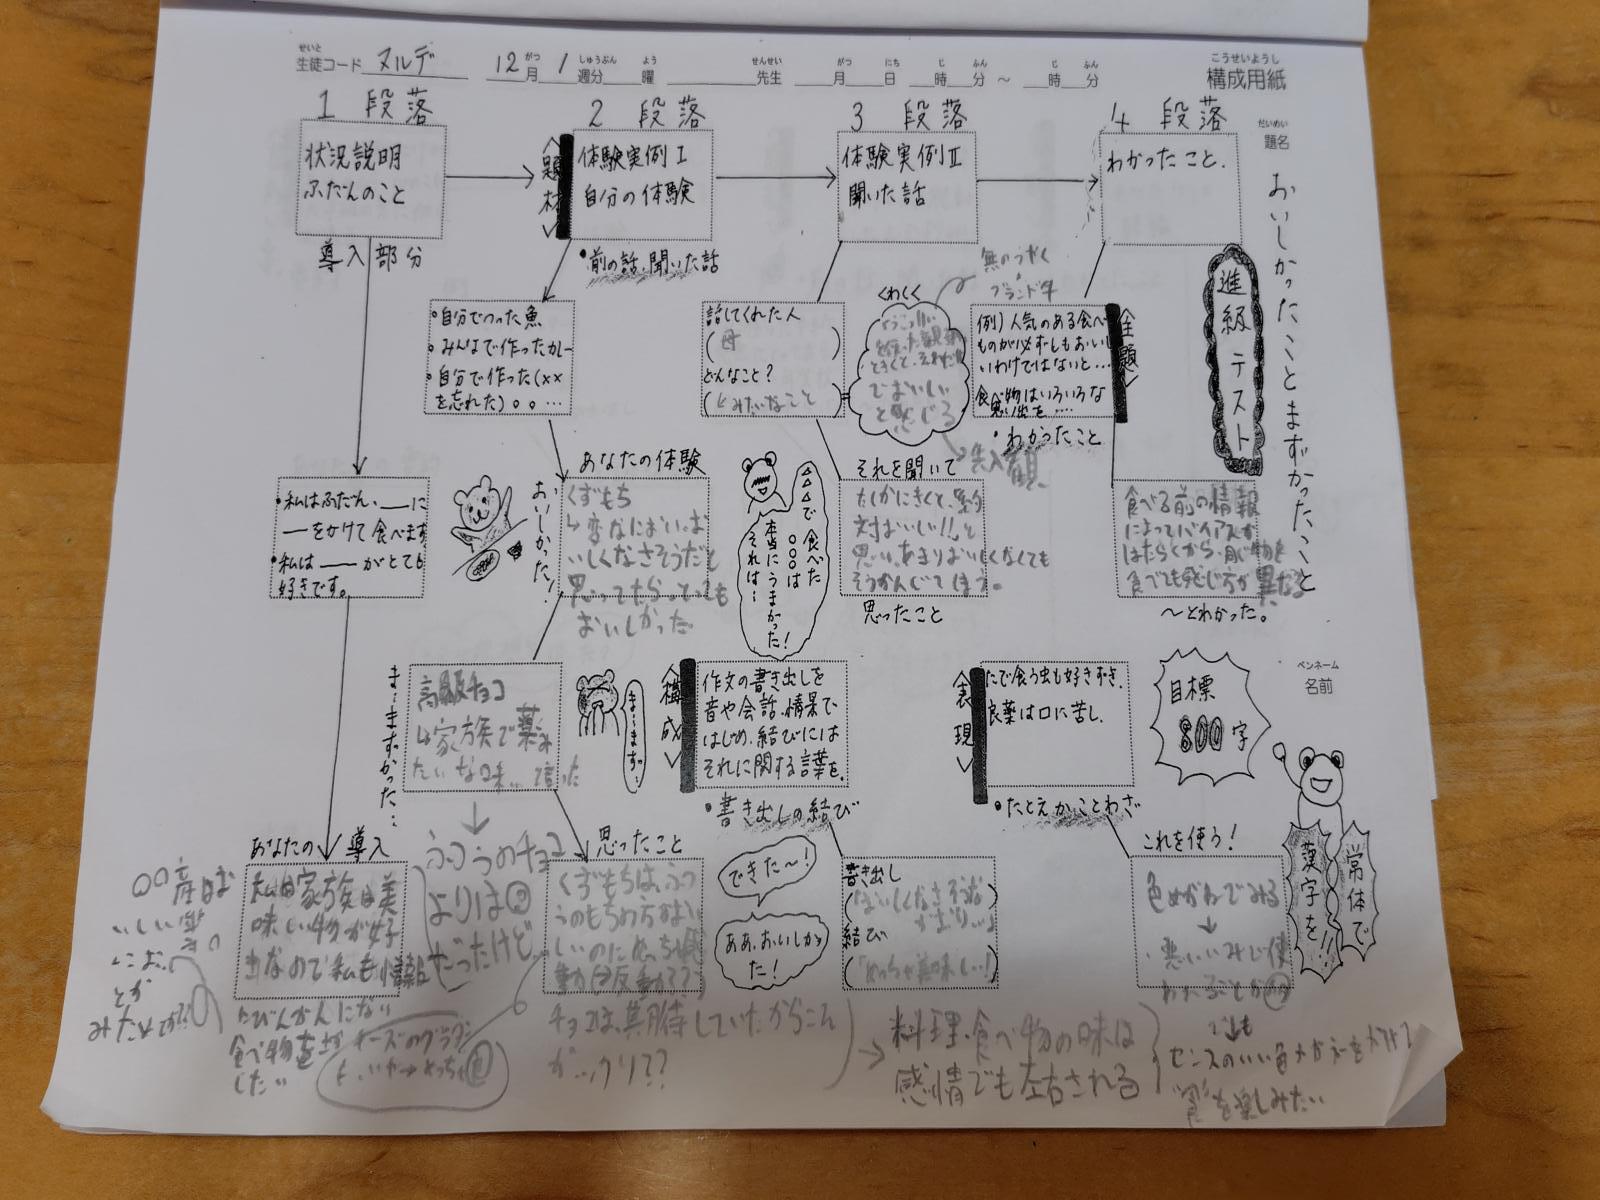 せいと
生徒コード ヌルデ 12月 1週分 曜 先生 月 日 時 分 ～ 時 分
がつ しゅうぶん よう せんせい がつ にち じ ふん じ ふん
こうせいようし
構成用紙
だいめい
題名
おいしかったことまずかったこと
進級テスト
1 段落
状況説明
ふだんのこと
導入部分
・私はふだん、＿＿に
―をかけて食べます
・私は＿＿がとても
好きです。
あなたの導入
家族は美
味しい物が好
きなので私も情報
にびんかんになり
食べ物を
2 段落
＜題材＞
体験実例Ⅰ
自分の体験
・前の話、聞いた話
・自分でつった魚
・みんなで作ったカレー
・自分で作った(××
を忘れた)。。…
あなたの体験
おいしかった！
くずもち
↳変なにおい。お
いしくなさそうだと
思ってたらとっても
おいしかった
まーまずかった…
高級チョコ
↳家族で薬み
たいな味…
まーまず。
ふつうのチョコ
よりは
だったけど…
思ったこと
くずもちは、ふつ
うのもちの方がおい
しいのにめっちゃ感
動
チョコは、期待していたからこそ
がックリ??
3 段落
体験実例Ⅱ
聞いた話
話してくれた人
(母 )
どんなこと?
(とみたいなこと )
くわしく
でおいしい
と感じる
無のうやく
ブランド牛
先入観
それを聞いて
たしかにきくと、絶
対おいしい!!と
思い、あまりおいしくなくても
そうかんじてしまう。
思ったこと
△△△で食べた
○○○は
本当にうまかった！
それは…
＜構成＞
作文の書き出しを
音や会話、情景で
はじめ、結びには
それに関する言葉を。
・書き出しの結び
できた〜！
ああ、おいしかっ
た！
書き出し
(「おいしくなさそうだ
結び
(「めっちゃ美味しい！
→料理・食べ物の味は
感情でも左右される
4 段落
わかったこと.
＜主題＞
例)人気のある食べ
ものが必ずしもおいし
いわけではないと…
食べ物はいろいろな
思い出を……
・わかったこと
食べる前の情報
によってバイアスが
はたらくから、同じ物を
食べても感じ方が異なる
〜とわかった。
＜表現＞
たで食う虫も好きずき.
良薬は口に苦し.
・たとえかことわざ
これを使う！
色めがねでみる
↓
悪いいみで使
われることが
でも
センスのいい色メガネを
食を楽しみたい
ペンネーム
名前
目標
800字
常体で
漢字を!!
○○産はお
いしい
とか
みたいな